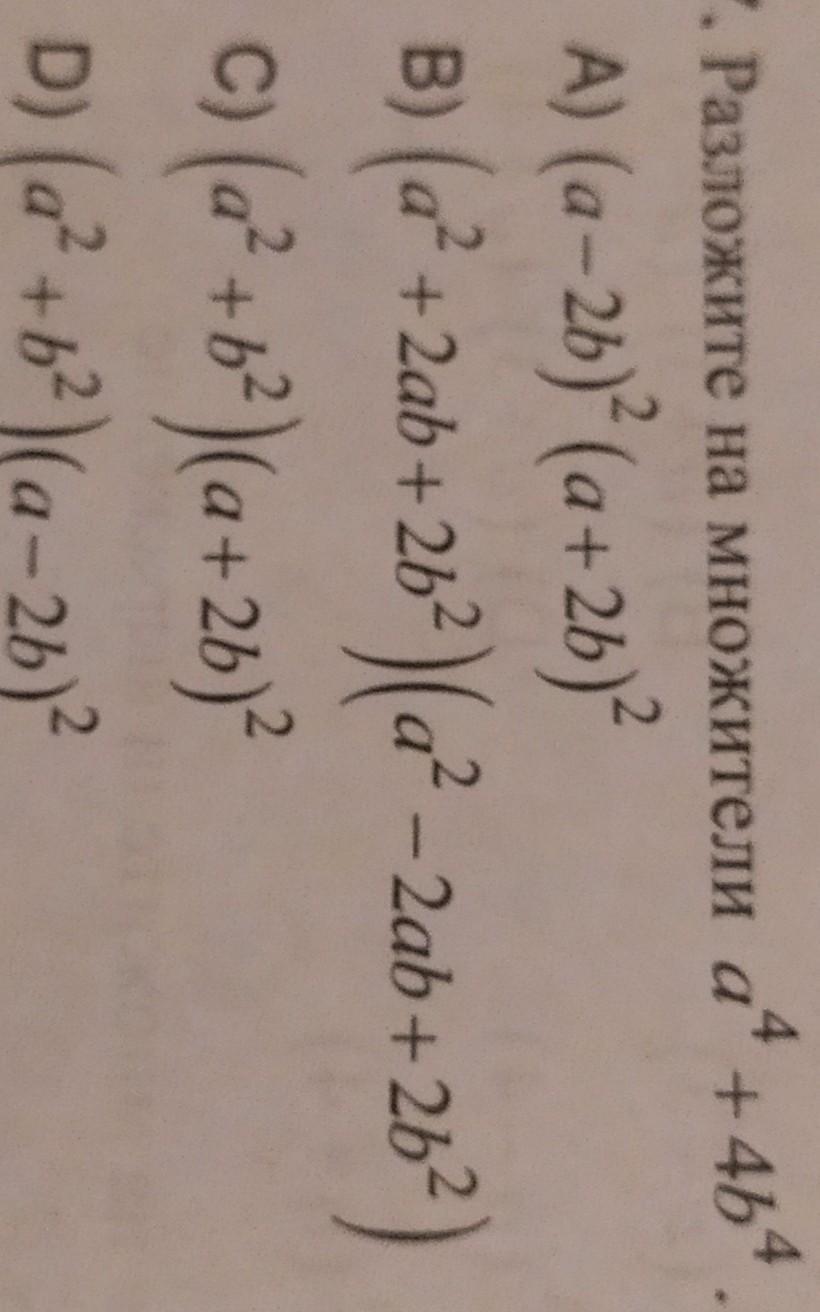 . Разложите на множители a⁴ + 4b⁴.
A) (a − 2b)² (a + 2b)²
B) (a² + 2ab + 2b²)(a² − 2ab + 2b²)
C) (a² + b²)(a + 2b)²
D) (a² + b²)(a − 2b)²